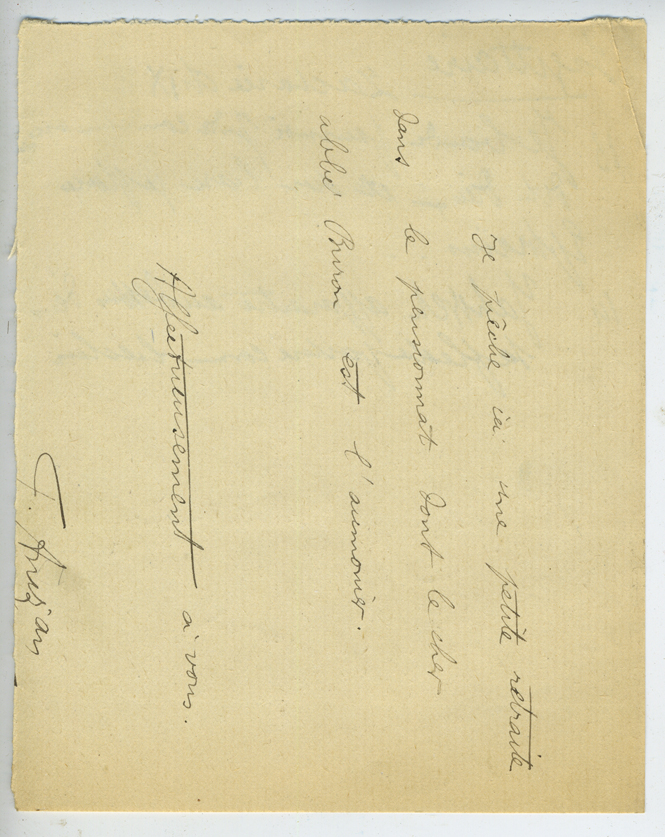 Je prêche ici une petite retraite
dans le pensionnat dont le cher
abbé Buron est l'aumonier.
Affectueusement à vous.
F.